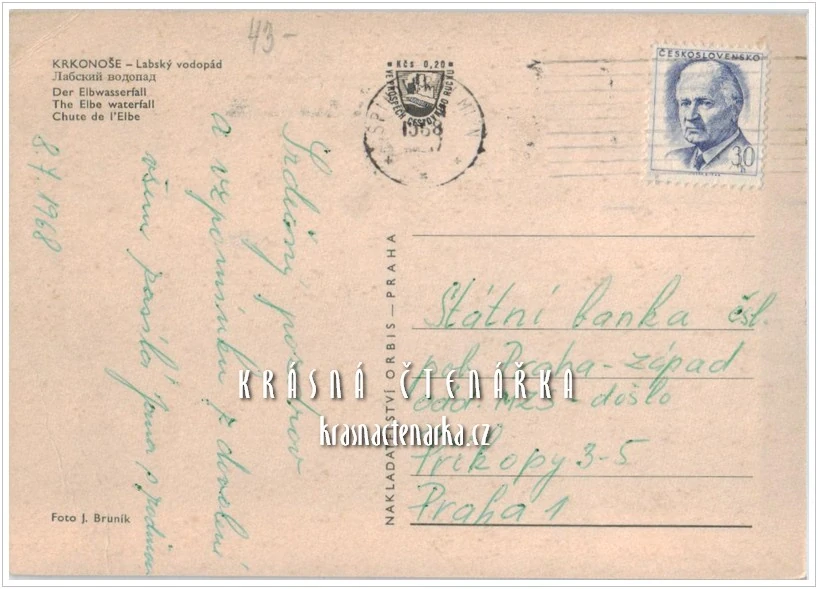 43-
KRKONOŠE – Labský vodopád
Лабский водопад
Der Elbwasserfall
The Elbe waterfall
Chute de l'Elbe
Kčs 0,20
1968
ČESKOSLOVENSKO
30
Srdečný pozdrav
a vzpomínku z dovolené
všem posílá
s rodinou
8.7.1968
NAKLADATELSTVÍ ORBIS – PRAHA
Státní banka čsl.
pob. Praha-západ
odd. MZS - došlo
Příkopy 3-5
Praha 1
KRÁSNÁ ČTENÁŘKA
krasnactenarka.cz
Foto J. Bruník